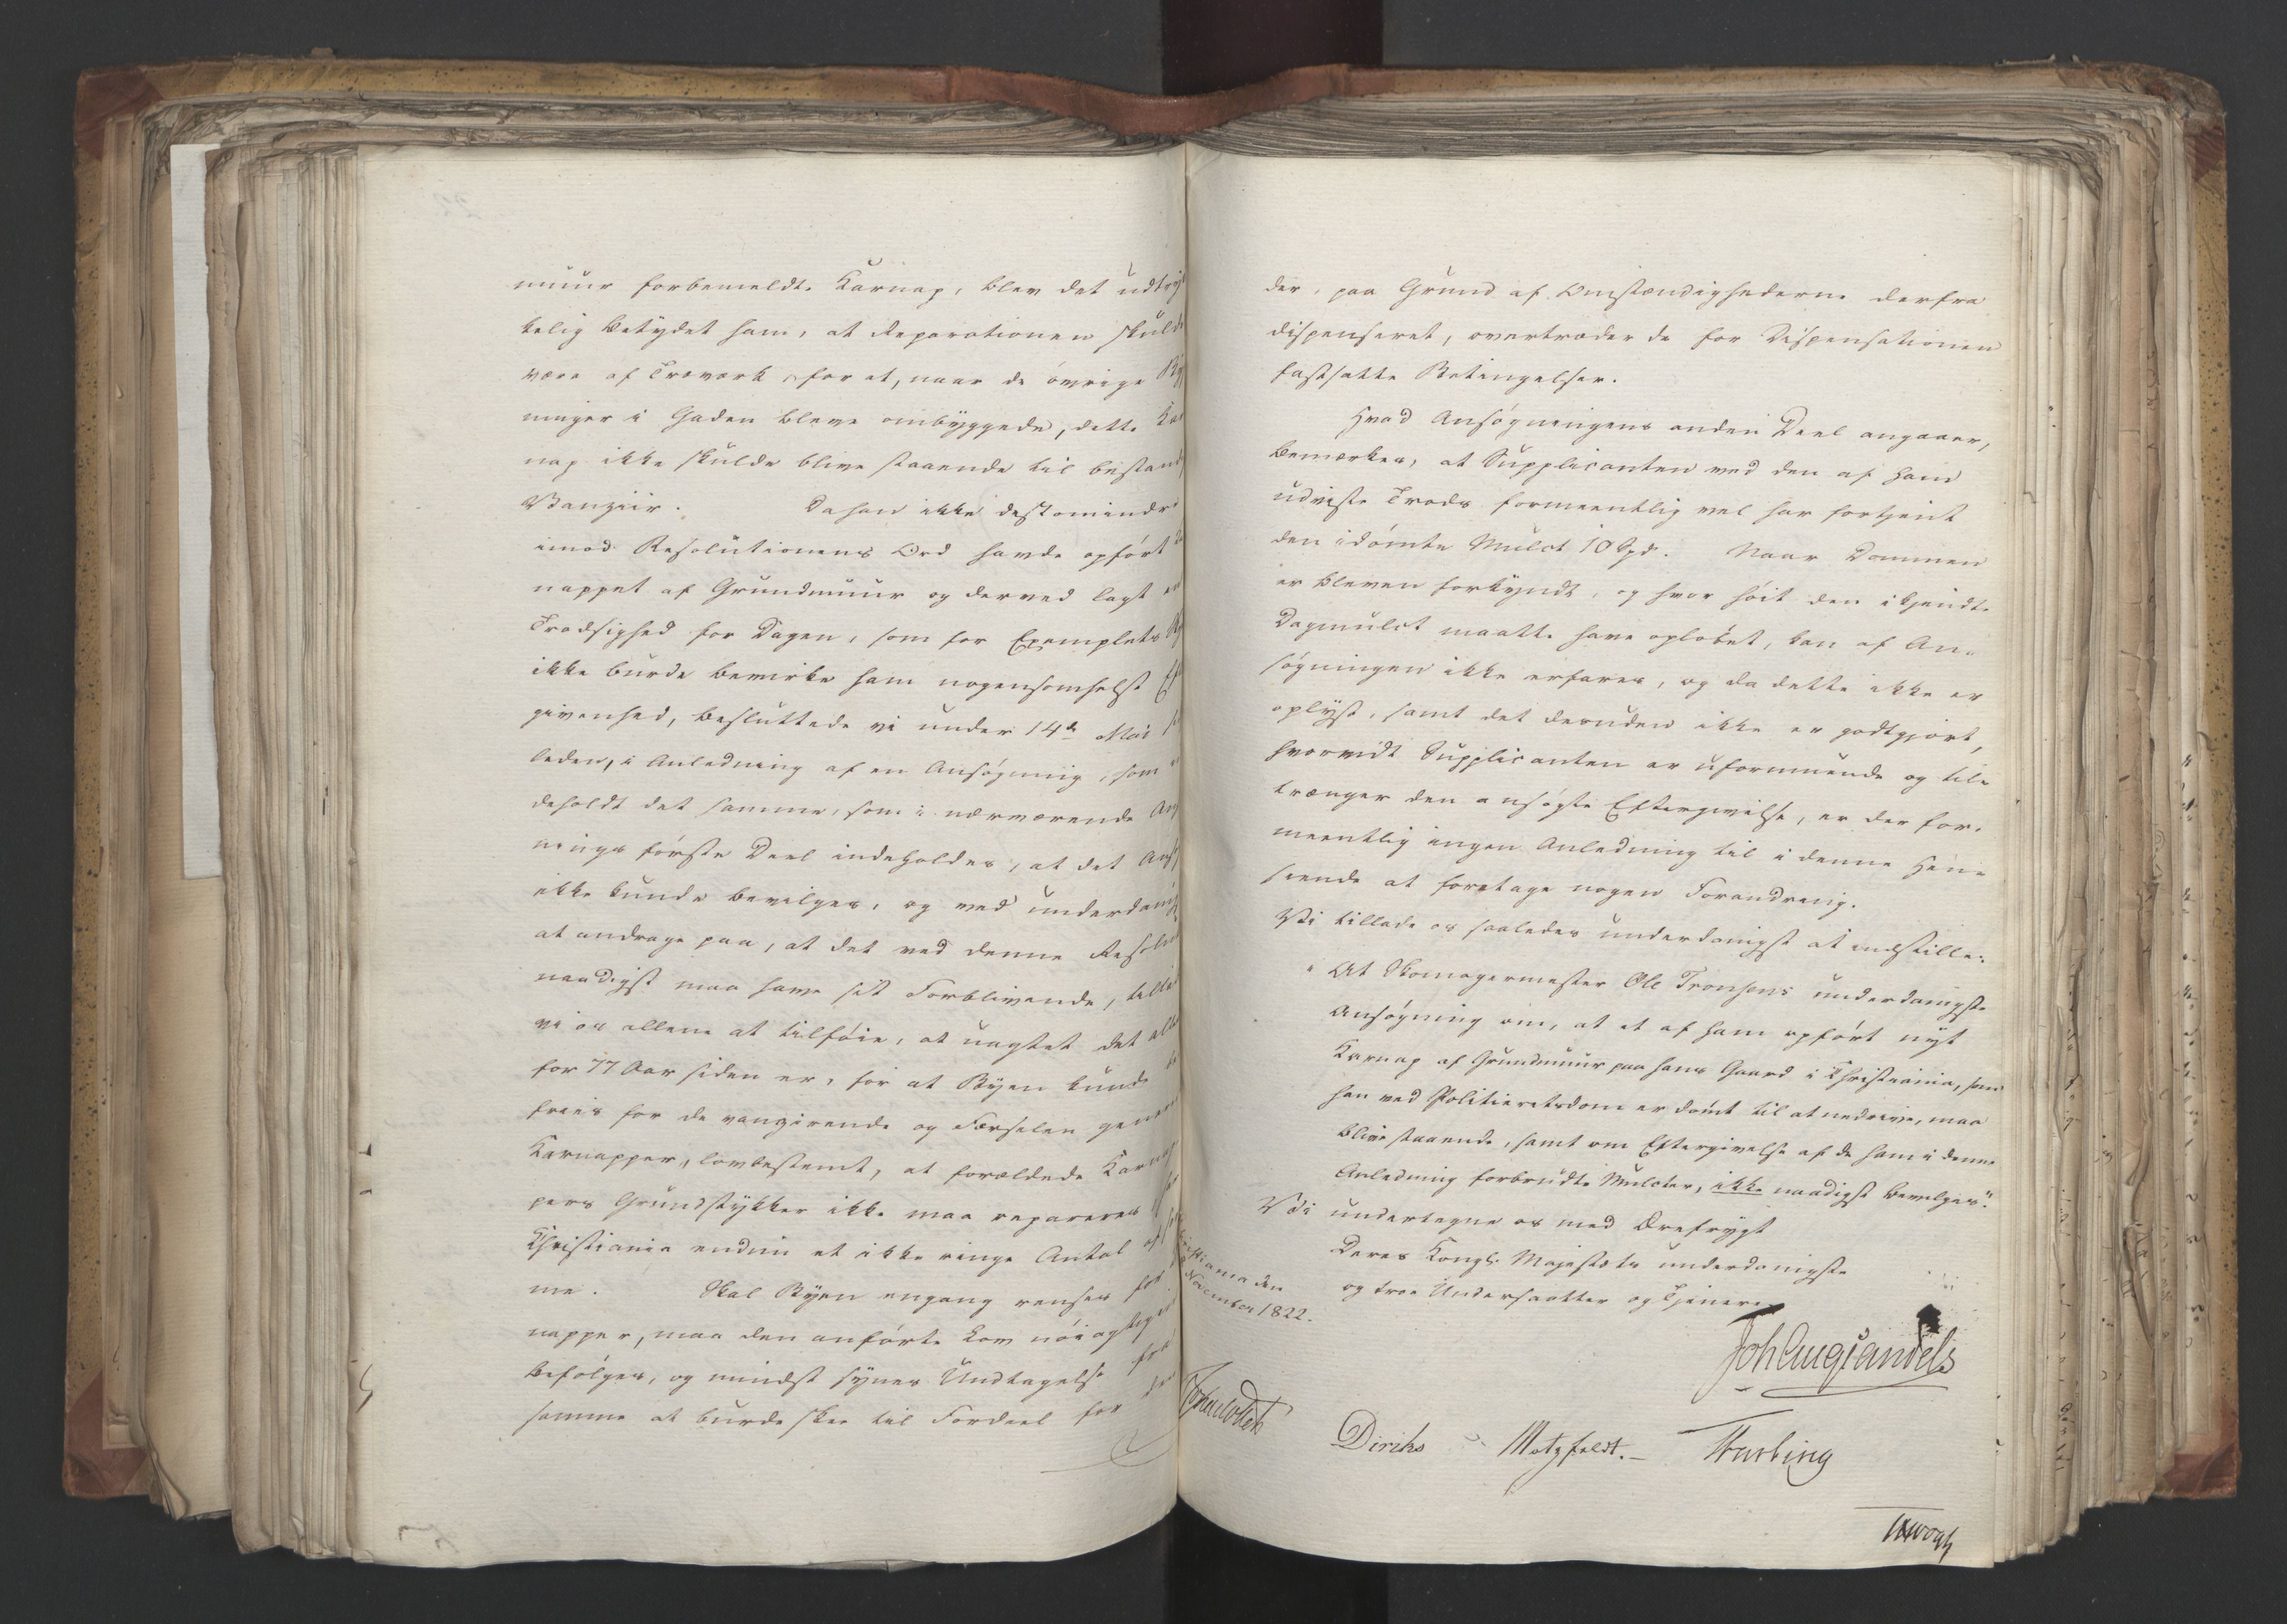 muur forbemeldte Karnap, blev det udtryk
kelig betydet ham, at Reparationen skulde
være af Træværk, for at, naar de øvrige Byg
ninger i Gaden bleve ombyggede, dette Kar
nap ikke skulde blive staaende til bestandig
Vanziir. Da han ikke destomindre
imod Resolutionens Ord havde opført Kar
nappet af Grundmuur og derved lagt en
Trodsighed for Dagen, som for Exemplets
ikke burde bevirke ham nogensomhelst Ef
givenhed, besluttede vi under 14de Mai
leden, i Anledning af en Ansøgning, som in
deholdt det samme, som i nærværende Ansøg
nings første Deel indeholdes, at det Ansøgte
ikke kunde bevilges, og ved underdanigst
at andrage paa, at det ved denne Resolution
naadigst maa have sit Forblivende, tillade
vi os allene at tilføie, at uagtet det allerede
for 77 Aar siden er, for at Byen kunde be
friés for de vanzirende og Færselen generende
Karnapper, lovbestemt, at forældede Karnap
pers Grundstykker ikke maa repareres, har
Christiania endnu et ikke ringe Antal af sam
me. Skal Byen engang renses for Kar
napper, maa den anførte Lov nöiagtigen
befölges, og mindst synes Undtagelse fra
samme at burde skee til Fordeel for den
der, paa Grund af Omstændighederne derfra
dispenseret, overtræder de for Dispensationen
fastsatte Betingelser.
Hvad Ansøgningens anden Deel angaaer,
bemærkes, at Supplicanten ved den af ham
udviste Trods formeentlig vel har fortjent
den idömte Mulct 10 Spd. Naar Dommen
er bleven forkyndt, og hvor høit den ikjendte
Dagmulct maatte have opløbet, kan af An-
søgningen ikke erfares, og da dette ikke er
oplyst, samt det desuden ikke er godtgjort,
hvorvidt Supplicanten er uformuende og til-
trænger den ansøgte Eftergivelse, er der for-
meentlig ingen Anledning til i denne Hen-
seende at foretage nogen Forandring.
Vi tillade os saaledes underdanigst at indstille:
"At Skomagermester Ole Tronsens underdanigste
Ansøgning om, at et af ham opført nyt
Karnap af Grundmuur paa hans Gaard i Christiania, som
han ved Politieretsdom er dømt til at nedrive, maa
blive staaende, samt om Eftergivelse af de ham i denne
Anledning forbrudte Mulcter, ikke naadigst bevilges."
Vi undertegne os med Ærefrygt
Deres Kongl. Majestæts underdanigste
og troe Undersaatter og Tjenere
Christiania den
November 1822.
Joh Aug Sandels
Diriks Motzfeldt.